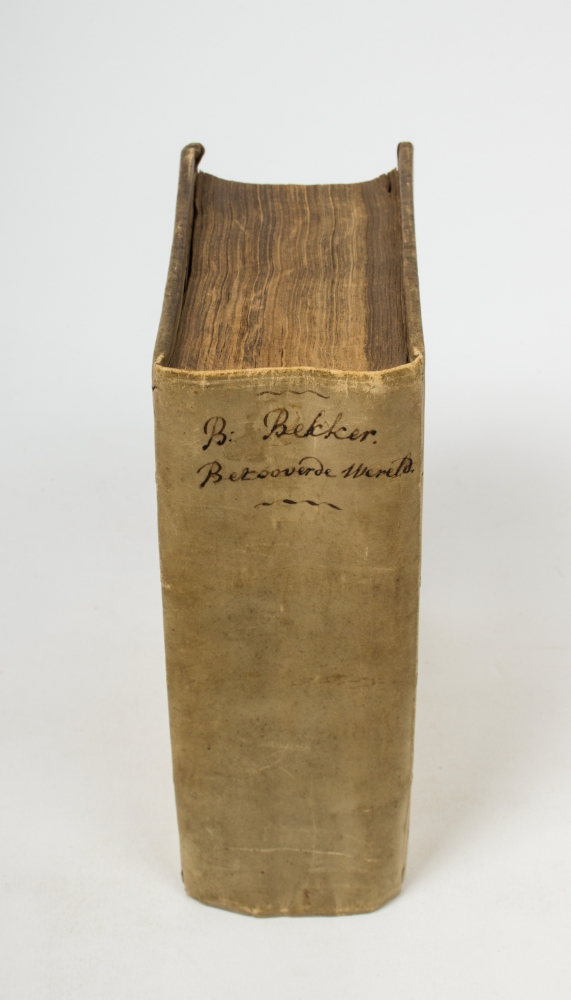 B: Bekker.
Betooverde Wereld.